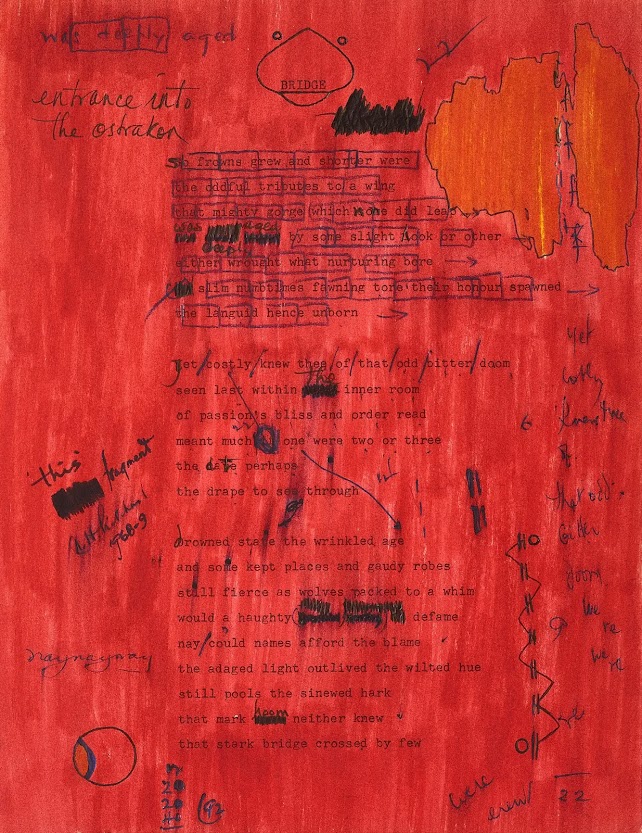 was deeply aged
BRIDGE
entrance into
the ostrakon
so frowns grew and shorter were
the oddful tributes to a wing
that mighty gorge which none did leap
was deeply aged by some slight look or other
either wrought what nurturing bore
slim numbtimes fawning tone their honour spawned
the languid hence unborn
yet/costly/knew thee/of that/odd bitter/doom
seen last within the inner room
of passion's bliss and order read
meant much one were two or three
the date perhaps
the drape to see through
drowned state the wrinkled age
and some kept places and gaudy robes
still fierce as wolves packed to a whim
would a haughty defame
nay/could names afford the blame
the adaged light outlived the wilted hue
still pools the sinewed hark
that mark neither knew
that stark bridge crossed by few
'this' fragment
968-9
naynaynay
yet
costly
that odd
bitter
doom
we
re
we
re
were
22
20
20